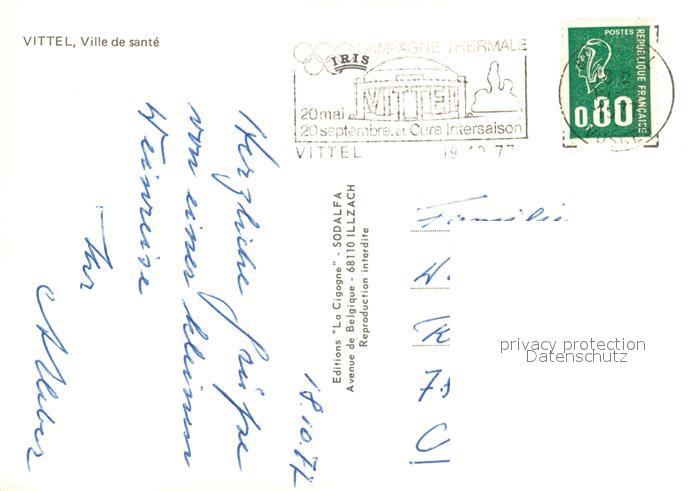 VITTEL, Ville de santé
CAMPAGNE THERMALE
IRIS
VITTEL
20 mai
20 septembre. et Cure Intersaison
VITTEL
19 10 77
POSTES
REPUBLIQUE FRANÇAISE
0,80
Herzliche Grüße
von einer kleinen
Weinreise
Ihr
A Weber
18.10.77
Editions "La Cigogne" - SODALFA
Avenue de Belgique - 68110 ILLZACH
Reproduction interdite
Familie
W.
K
privacy protection
Datenschutz